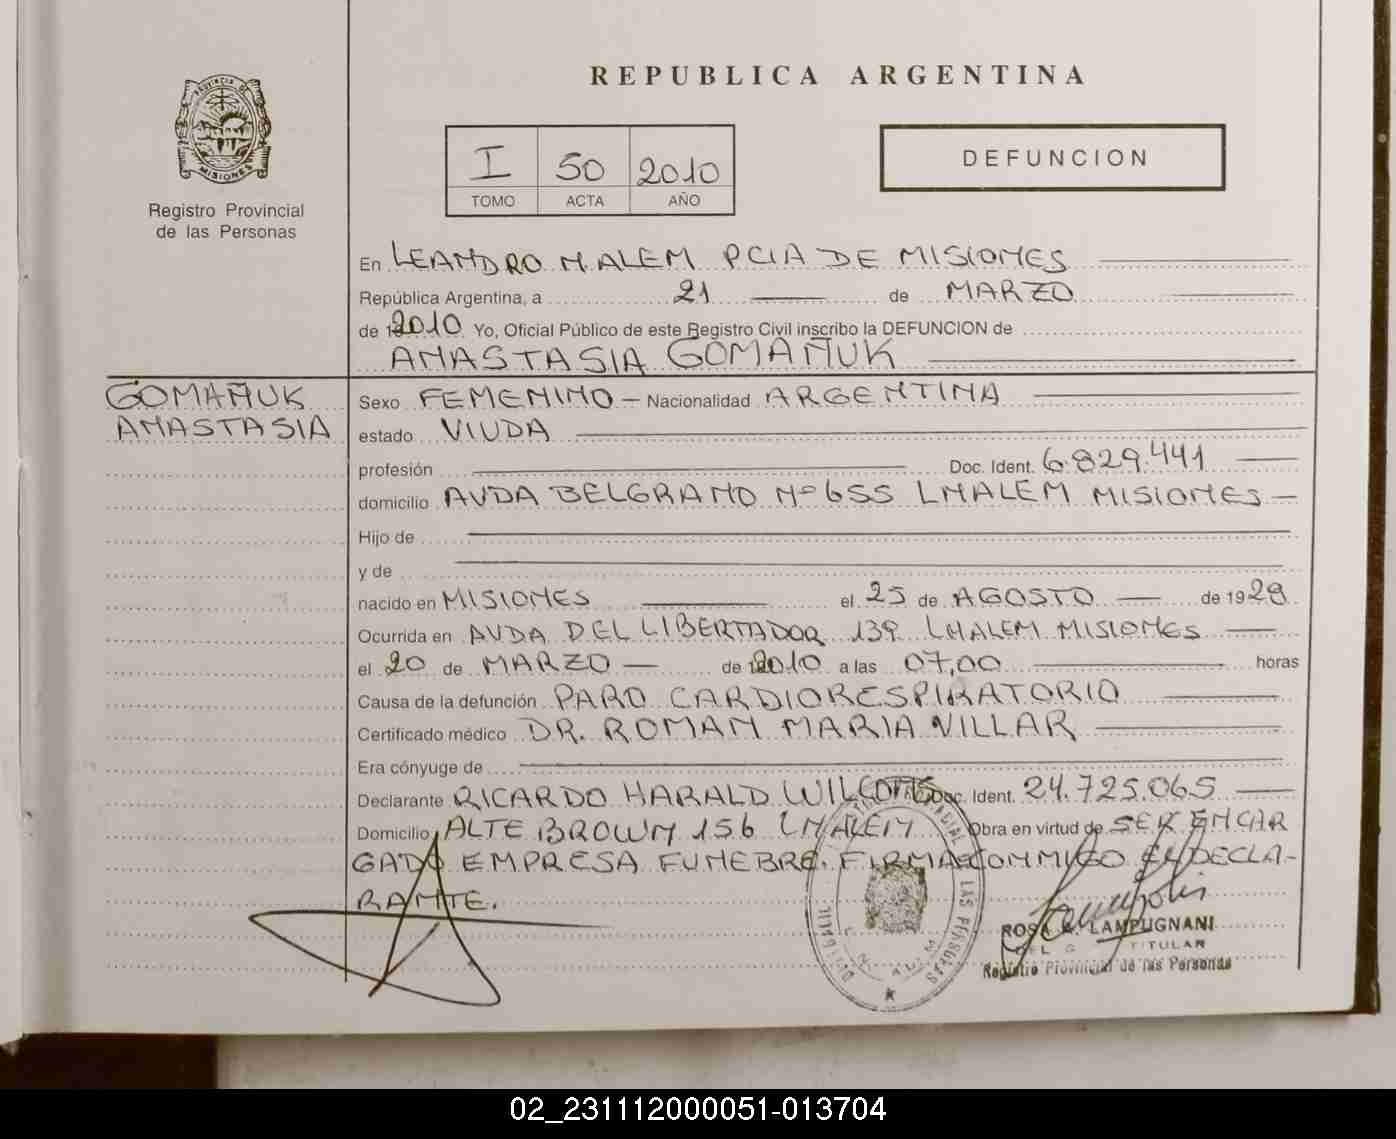 REPUBLICA ARGENTINA
PROVINCIA DE
MISIONES
Registro Provincial
de las Personas
I 50 2010
TOMO ACTA AÑO
DEFUNCION
En LEANDRO N. ALEM PCIA DE MISIONES
República Argentina, a 21 de MARZO
de 2010 Yo, Oficial Público de este Registro Civil inscribo la DEFUNCION de
ANASTASIA GOMAÑUK
GOMAÑUK
ANASTASIA
Sexo FEMENINO - Nacionalidad ARGENTINA
estado VIUDA
profesión Doc. Ident. 6.829.441
domicilio AVDA BELGRANO Nº 655 LNALEM MISIONES -
Hijo de
y de
nacido en MISIONES el 25 de AGOSTO de 1929
Ocurrida en AVDA DEL LIBERTADOR 139 LNALEM MISIONES
el 20 de MARZO - de 2010 a las 07,00 horas
Causa de la defunción PARO CARDIORESPIRATORIO
Certificado médico DR. ROMAN MARIA VILLAR
Era cónyuge de
Declarante RICARDO HARALD Doc. Ident. 24.725.065
Domicilio ALTE BROWN 156 LNALEM Obra en virtud de SER ENCAR
GADO EMPRESA FUNEBRE. FIRMA CONMIGO EL DECLA-
RANTE.
ROSA LAMPUGNANI
TITULAR
Registro Provincial de las Personas
02_231112000051-013704